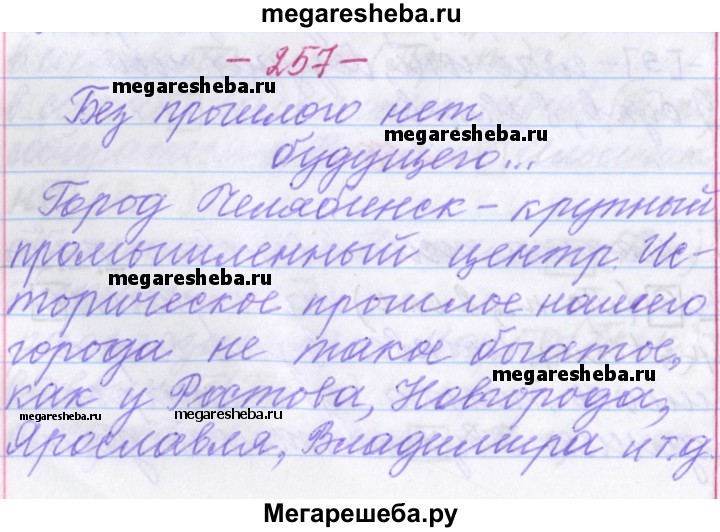 megaresheba.ru
- 257 -
megaresheba.ru
Без прошлого нет
megaresheba.ru
будущего...
Город Челябинск - крупный
промышленный центр. Ис-
megaresheba.ru
торическое прошлое нашего
города не такое богатое,
megaresheba.ru
как у Ростова, Новгорода,
megaresheba.ru megaresheba.ru
Ярославля, Владимира и т.д.
Мегарешеба.ру